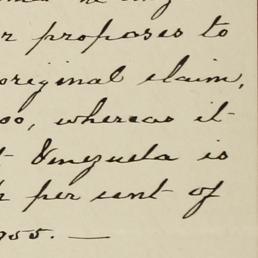 r proposes to
original claim,
00, whereas it
t Venezuela is
per cent of
955. —